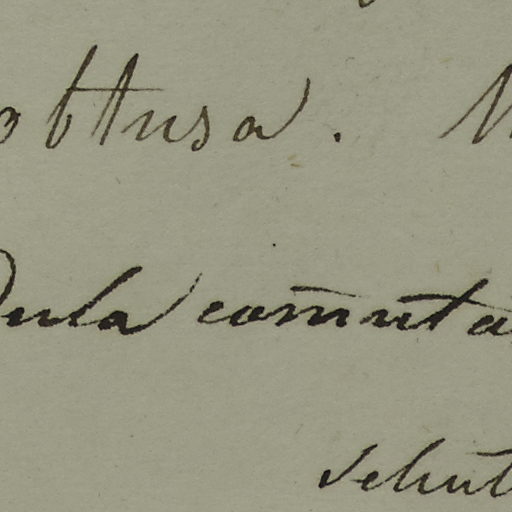 obtusa. M
dula com̄uta
schut